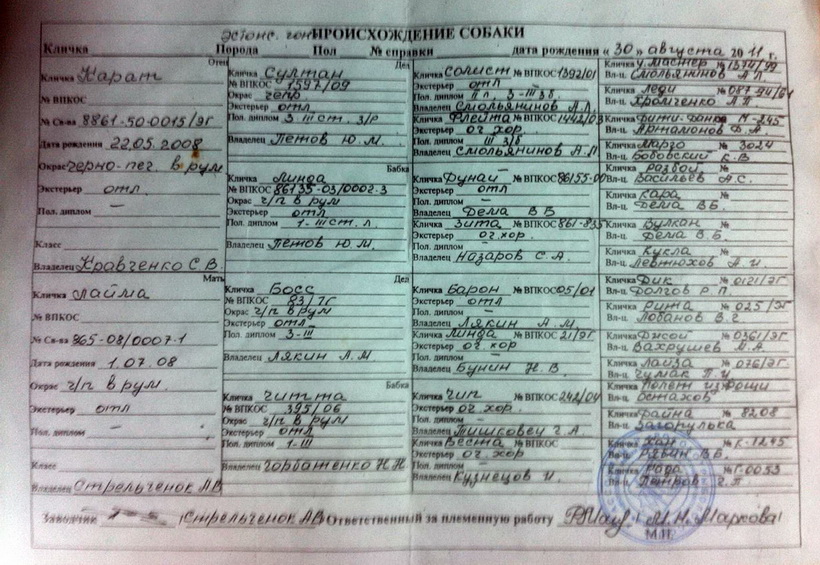 эстонс. гон ПРОИСХОЖДЕНИЕ СОБАКИ
Кличка Порода Пол № справки дата рождения « 30 » августа 20 11 г.
Отец
Кличка Карат
№ ВПКОС
№ Св-ва 8861-50-0015/ЭГ
Дата рождения 22.05.2008
Окрас черно-пег. в рум
Экстерьер отл.
Пол. диплом —
Класс
Владелец Кравченко С.В.
Мать
Кличка Лайма
№ ВПКОС
№ Св-ва 865-08/0007-1
Дата рождения 1.07.08
Окрас ч/п в рум.
Экстерьер отл
Пол. диплом —
Класс
Владелец Стрельченок АВ
Дед
Кличка Султан
№ ВПКОС 1597/09
Окрас чепр
Экстерьер отл
Пол. диплом 3-III ст. з/р
Владелец Петов Ю.М.
Бабка
Кличка Линда
№ ВПКОС 86135-03/0002-3
Окрас ч/п в рум
Экстерьер отл
Пол. диплом 1-III ст. л.
Владелец Петов Ю.М.
Дед
Кличка Босс
№ ВПКОС 83/7Г
Окрас ч/п в рум
Экстерьер отл
Пол. диплом 3-III
Владелец Лякин А.М
Бабка
Кличка Читта
№ ВПКОС 395/06
Окрас ч/п в рум
Экстерьер отл
Пол. диплом 1-III
Владелец Горбатенко Н.Н
Кличка Солист № ВПКОС 1392/01
Экстерьер отл
Пол. диплом
Владелец Смольянинов А.Л.
Кличка Флейта № ВПКОС 1442/03
Экстерьер оч. хор.
Пол. диплом III з/б
Владелец Смольянинов А.Л
Кличка Дунай № ВПКОС
Экстерьер отл
Пол. диплом —
Владелец Дема В Б
Кличка Зита № ВПКОС
Экстерьер оч.хор.
Пол. диплом —
Владелец Назаров С.А.
Кличка Барон № ВПКОС 05/01
Экстерьер отл
Пол. диплом —
Владелец Лякин А.М.
Кличка Линда № ВПКОС 21/ЭГ
Экстерьер оч. хор
Пол. диплом
Владелец Бунин Н.В
Кличка Чип № ВПКОС 242/04
Экстерьер оч хор.
Пол. диплом —
Владелец Тишковец Г.А.
Кличка Веста № ВПКОС
Экстерьер оч. хор
Пол. диплом —
Владелец Кузнецов И.
Кличка Ч.Мастер № 1374/99
Вл-ц. Смольянинов А Л.
Кличка Леди №
Вл-ц. Хромченко А П
Кличка
Вл-ц. Артамонов Ф.А.
Кличка Марго № 3024
Вл-ц. Бобовский К.В
Кличка Разбой №
Вл-ц. Васильев А.С.
Кличка Кара №
Вл-ц. Дема В Б.
Кличка Вулкан №
Вл-ц. Дема В.Б.
Кличка Кукла №
Вл-ц. Левтюхов А.И.
Кличка Дик № 0121/ЭГ
Вл-ц. Долгов Р.П
Кличка Рита № 025/ЭГ
Вл-ц. Лобанов В.Г
Кличка Джой № 0361/ЭГ
Вл-ц. Вахрушев М.А.
Кличка Лайза № 076/ЭГ
Вл-ц. Чумак П.И
Кличка Полет из Рощи
Вл-ц. Остахов
Кличка Файна № 8208
Вл-ц. Загорулька
Кличка Хан № К-1245
Вл-ц. Рябин В.Б.
Кличка Рада № Г.0053
Вл-ц. Петров Г.П
Заводчик Стрельченок АВ Ответственный за племенную работу М.Н. Маркова
М.П.